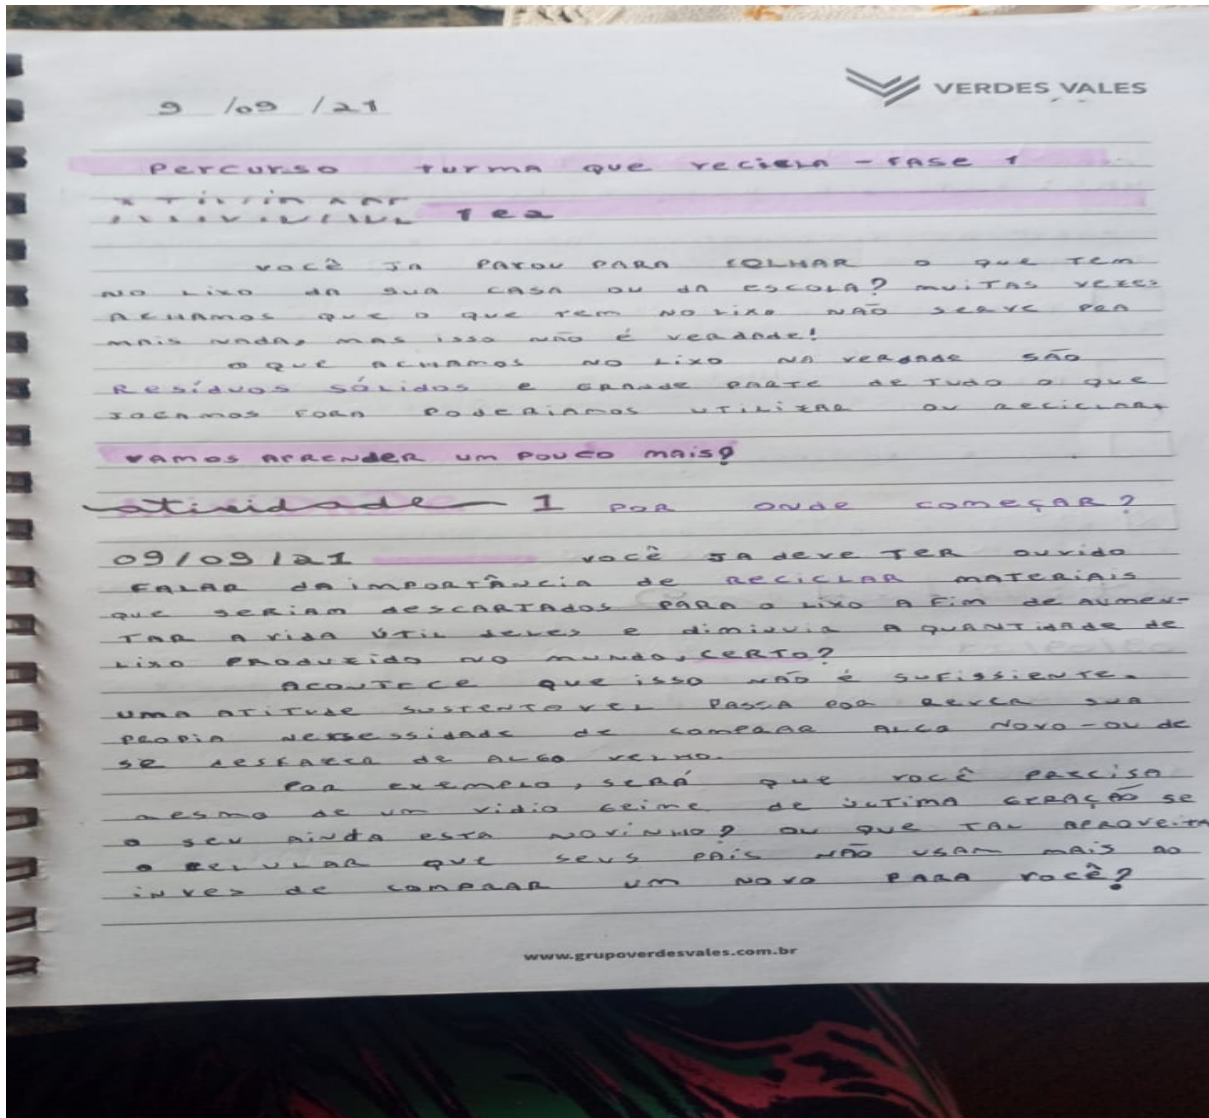 VERDES VALES
9 /09 /21
Percurso turma que recicla - fase 1
1 e 2
você ja parou para colhar o que tem
no lixo da sua casa ou da escola? muitas vezes
achamos que o que tem no lixo não serve por
mais nada, mas isso não é verdade!
o que achamos no lixo na verdade são
Resíduos sólidos e grande parte de tudo o que
jogamos fora poderiamos utilizar ou reciclar,
vamos aprender um pouco mais?
atividade 1 por onde começar?
09/09/21 você ja deve ter ouvido
falar da importância de reciclar materiais
que seriam descartados para o lixo a fim de aumen-
tar a vida útil deles e diminuia a quantidade de
lixo produzido no mundo, certo?
acontece que isso não é sufissiente.
uma atitude sustentovel passa por rever sua
propia nessessidade de comprar algo novo - ou de
se desfazer de algo velho.
por exemplo, será que você precisa
mesmo de um vidio geime de última geração se
o seu ainda esta novinho? ou que tal aproveita
o celular que seus pais não usam mais ao
inves de comprar um novo para você?
www.grupoverdesvales.com.br